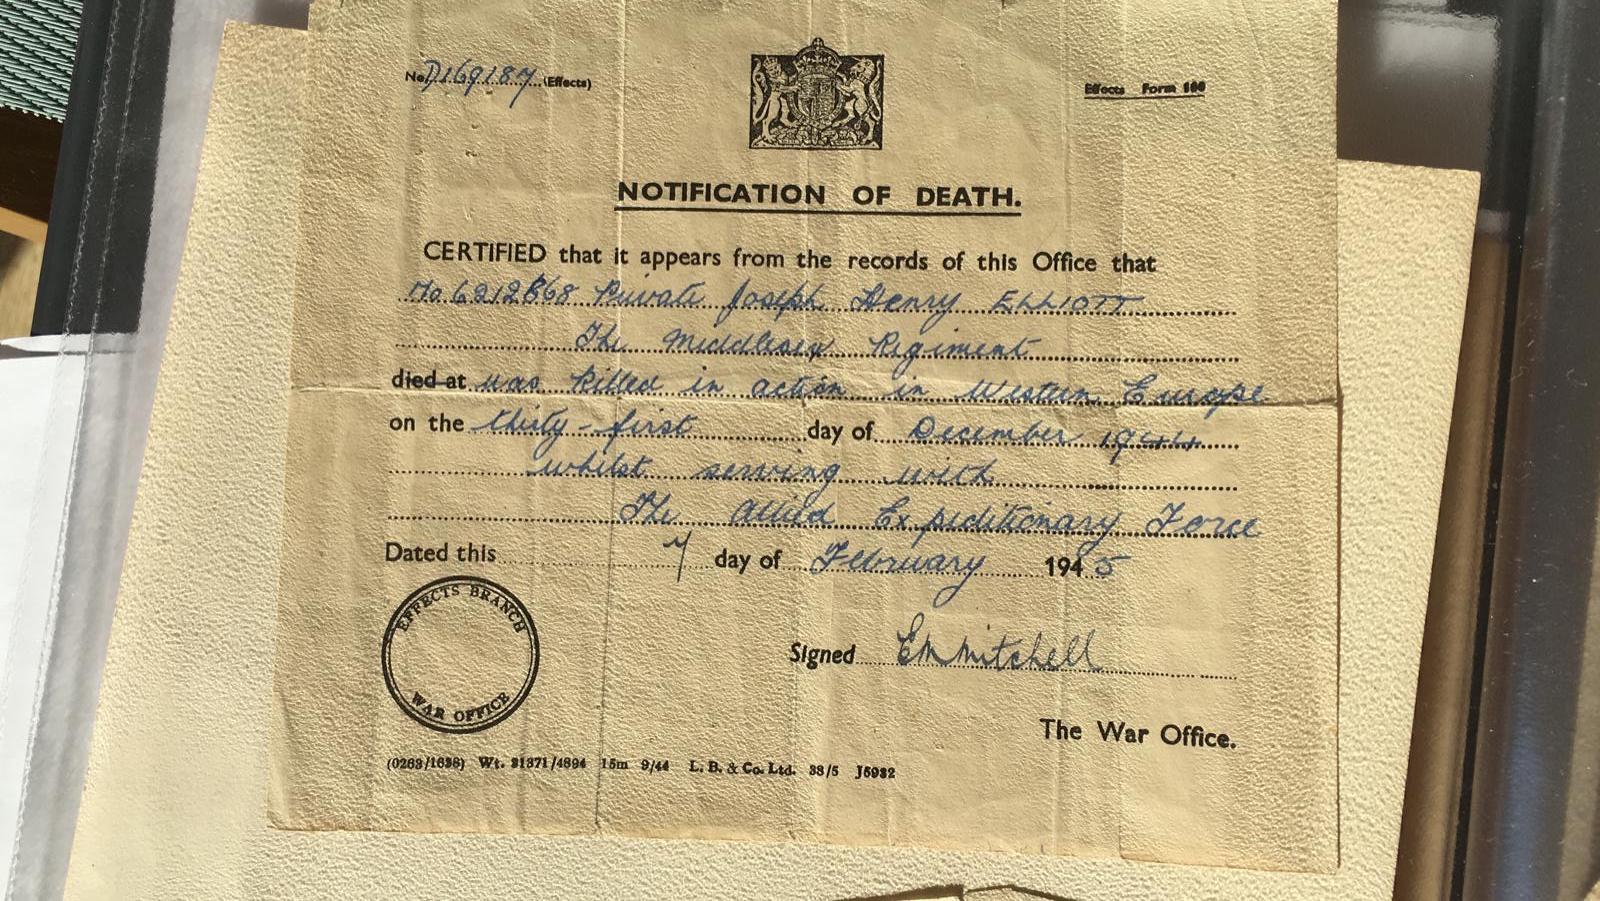 No D/169187 (Effects)
Effects Form 100
NOTIFICATION OF DEATH.
CERTIFIED that it appears from the records of this Office that
No 6212868 Private Joseph Henry ELLIOTT
The Middlesex Regiment
died at was killed in action in Western Europe
on the thirty-first day of December 1944
whilst serving with
The Allied Expeditionary Force
Dated this 7 day of February 1945
EFFECTS BRANCH
WAR OFFICE
Signed EM Mitchell
The War Office.
(0263/1636) Wt. 31371/4894 15m 9/44 L. B. & Co. Ltd. 38/5 J5932